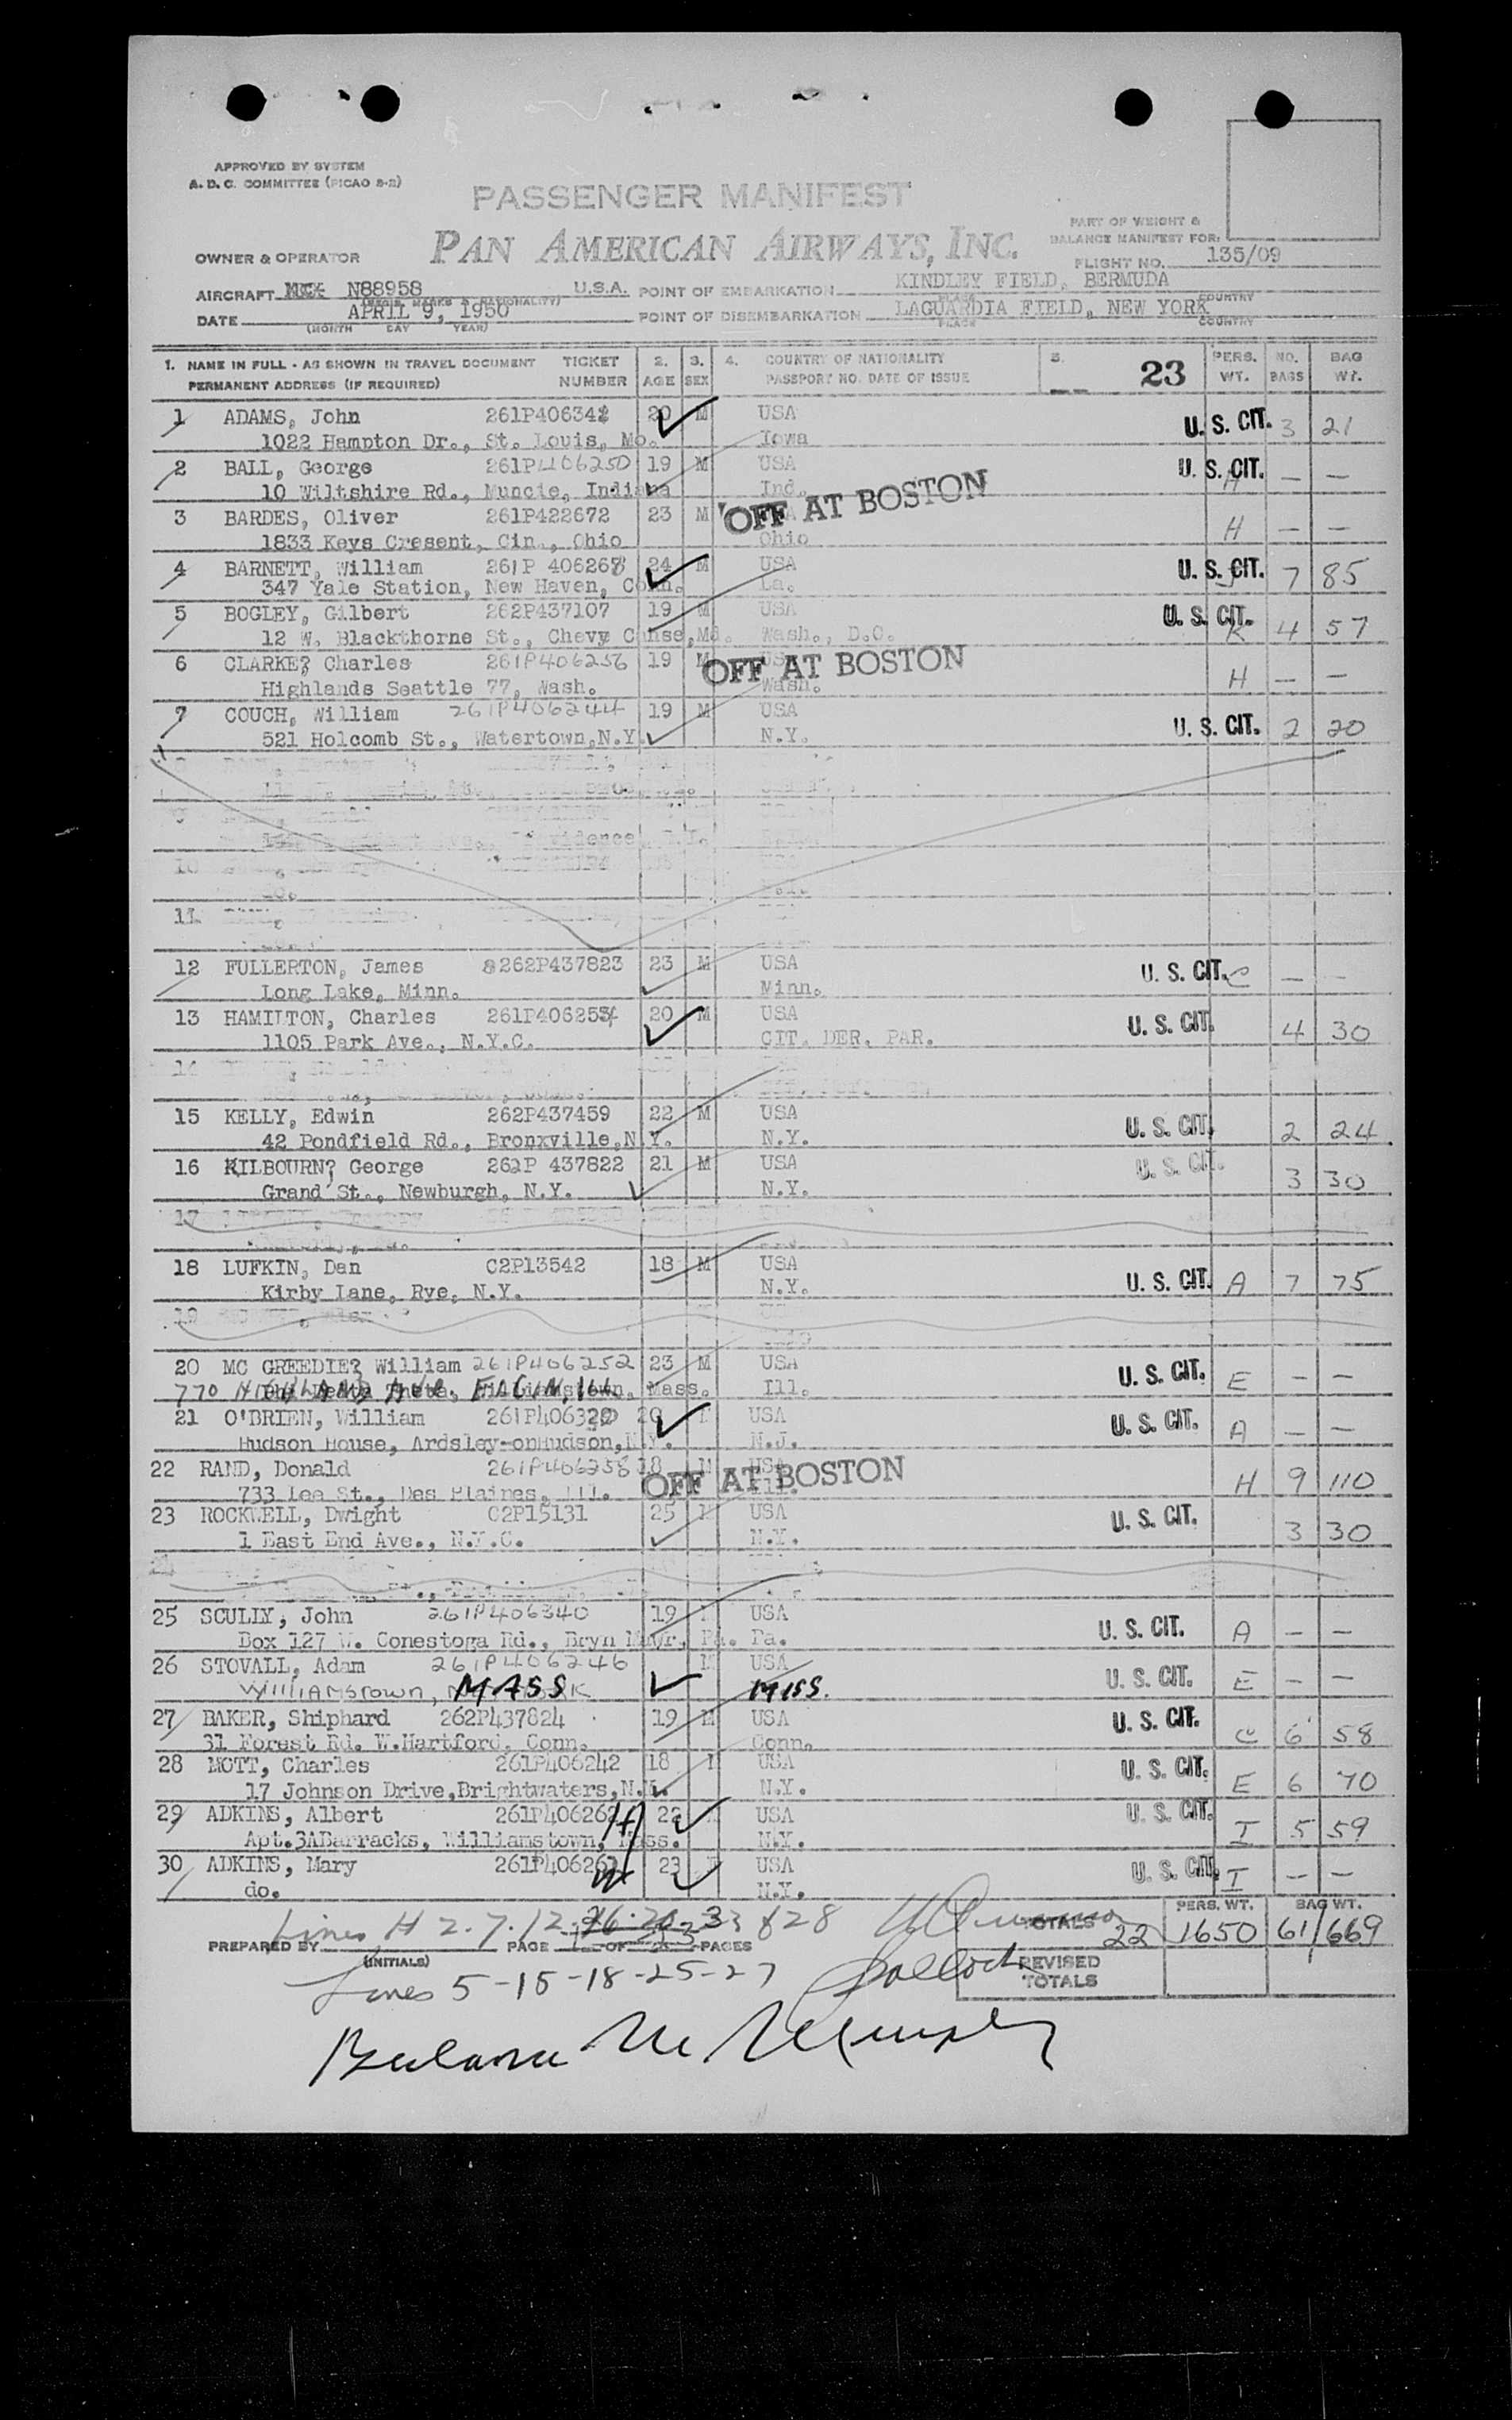 APPROVED BY SYSTEM
A. D. C. COMMITTEE (PICAO 8-2)
PASSENGER MANIFEST
PART OF WEIGHT &
BALANCE MANIFEST FOR:
OWNER & OPERATOR PAN AMERICAN AIRWAYS, INC.
FLIGHT NO. 135/09
AIRCRAFT N88958 U.S.A. POINT OF EMBARKATION KINDLEY FIELD, BERMUDA
(REGIS. MARKS & NATIONALITY) PLACE COUNTRY
DATE APRIL 9, 1950 POINT OF DISEMBARKATION LAGUARDIA FIELD, NEW YORK
(MONTH DAY YEAR) PLACE COUNTRY
1. NAME IN FULL - AS SHOWN IN TRAVEL DOCUMENT TICKET 2. 3. 4. COUNTRY OF NATIONALITY 5. 23 PERS. NO. BAG
PERMANENT ADDRESS (IF REQUIRED) NUMBER AGE SEX PASSPORT NO. DATE OF ISSUE WT. BAGS WT.
1 ADAMS, John 261P406342 20 M USA U. S. CIT. 3 21
1022 Hampton Dr., St. Louis, Mo. Iowa
2 BALL, George 261P406250 19 M USA U. S. CIT. H — —
10 Wiltshire Rd., Muncie, Indiana Ind.
3 BARDES, Oliver 261P422672 23 M OFF AT BOSTON H — —
1833 Keys Cresent, Cin., Ohio Ohio
4 BARNETT, William 261P 406268 24 M USA U. S. CIT. 7 85
347 Yale Station, New Haven, Conn. La.
5 BOGLEY, Gilbert 262P437107 19 M USA U. S. CIT. K 4 57
12 W. Blackthorne St., Chevy Chase,Md. Wash., D.C.
6 CLARKE? Charles 261P406256 19 M OFF AT BOSTON H — —
Highlands Seattle 77, Wash. Wash.
7 COUCH, William 261P406244 19 M USA U. S. CIT. 2 20
521 Holcomb St., Watertown,N.Y. N.Y.
9
10
11
12 FULLERTON, James 262P437823 23 M USA U. S. CIT. C — —
Long Lake, Minn. Minn.
13 HAMILTON, Charles 261P406254 20 M USA U. S. CIT. 4 30
1105 Park Ave., N.Y.C. CIT. DER. PAR.
14
15 KELLY, Edwin 262P437459 22 M USA U. S. CIT. 2 24
42 Pondfield Rd., Bronxville,N.Y. N.Y.
16 KILBOURN? George 262P 437822 21 M USA U. S. CIT. 3 30
Grand St., Newburgh, N.Y. N.Y.
17
18 LUFKIN, Dan C2P13542 18 M USA U. S. CIT. A 7 75
Kirby Lane, Rye, N.Y. N.Y.
19
20 MC GREEDIE? William 261P406252 23 M USA U. S. CIT. E — —
770 HIGHLAND AVE, ELGIN, ILL Mass. Ill.
21 O'BRIEN, William 261P406320 20 M USA U. S. CIT. A — —
Hudson House, Ardsley-onHudson,N.Y. N.J.
22 RAND, Donald 261P406258 18 M USA OFF AT BOSTON H 9 110
733 Lee St., Des Plaines, Ill. Ill.
23 ROCKWELL, Dwight C2P15131 25 M USA U. S. CIT. 3 30
1 East End Ave., N.Y.C. N.Y.
25 SCULLY, John 261P406340 19 M USA U. S. CIT. A — —
Box 127 W. Conestoga Rd., Bryn Mawr, Pa. Pa.
26 STOVALL, Adam 261P406246 M USA U. S. CIT. E — —
WILLIAMSTOWN, MASS MISS.
27 BAKER, Shiphard 262P437824 19 M USA U. S. CIT. C 6 58
31 Forest Rd. W.Hartford, Conn. Conn.
28 MOTT, Charles 261P406242 18 M USA U. S. CIT. E 6 70
17 Johnson Drive,Brightwaters,N.Y. N.Y.
29 ADKINS, Albert 261P406262 22 USA U. S. CIT. I 5 59
Apt.3ABarracks, Williamstown, Mass. N.Y.
30 ADKINS, Mary 261P406261 23 F USA U. S. CIT. I — —
do. N.Y.
Lines H 2.7.12. 16.20.23 & 28
PERS. WT. BAG WT.
TOTALS 22 1650 61/669
PREPARED BY PAGE OF PAGES
(INITIALS)
REVISED
TOTALS
Lines 5-15-18-25-27